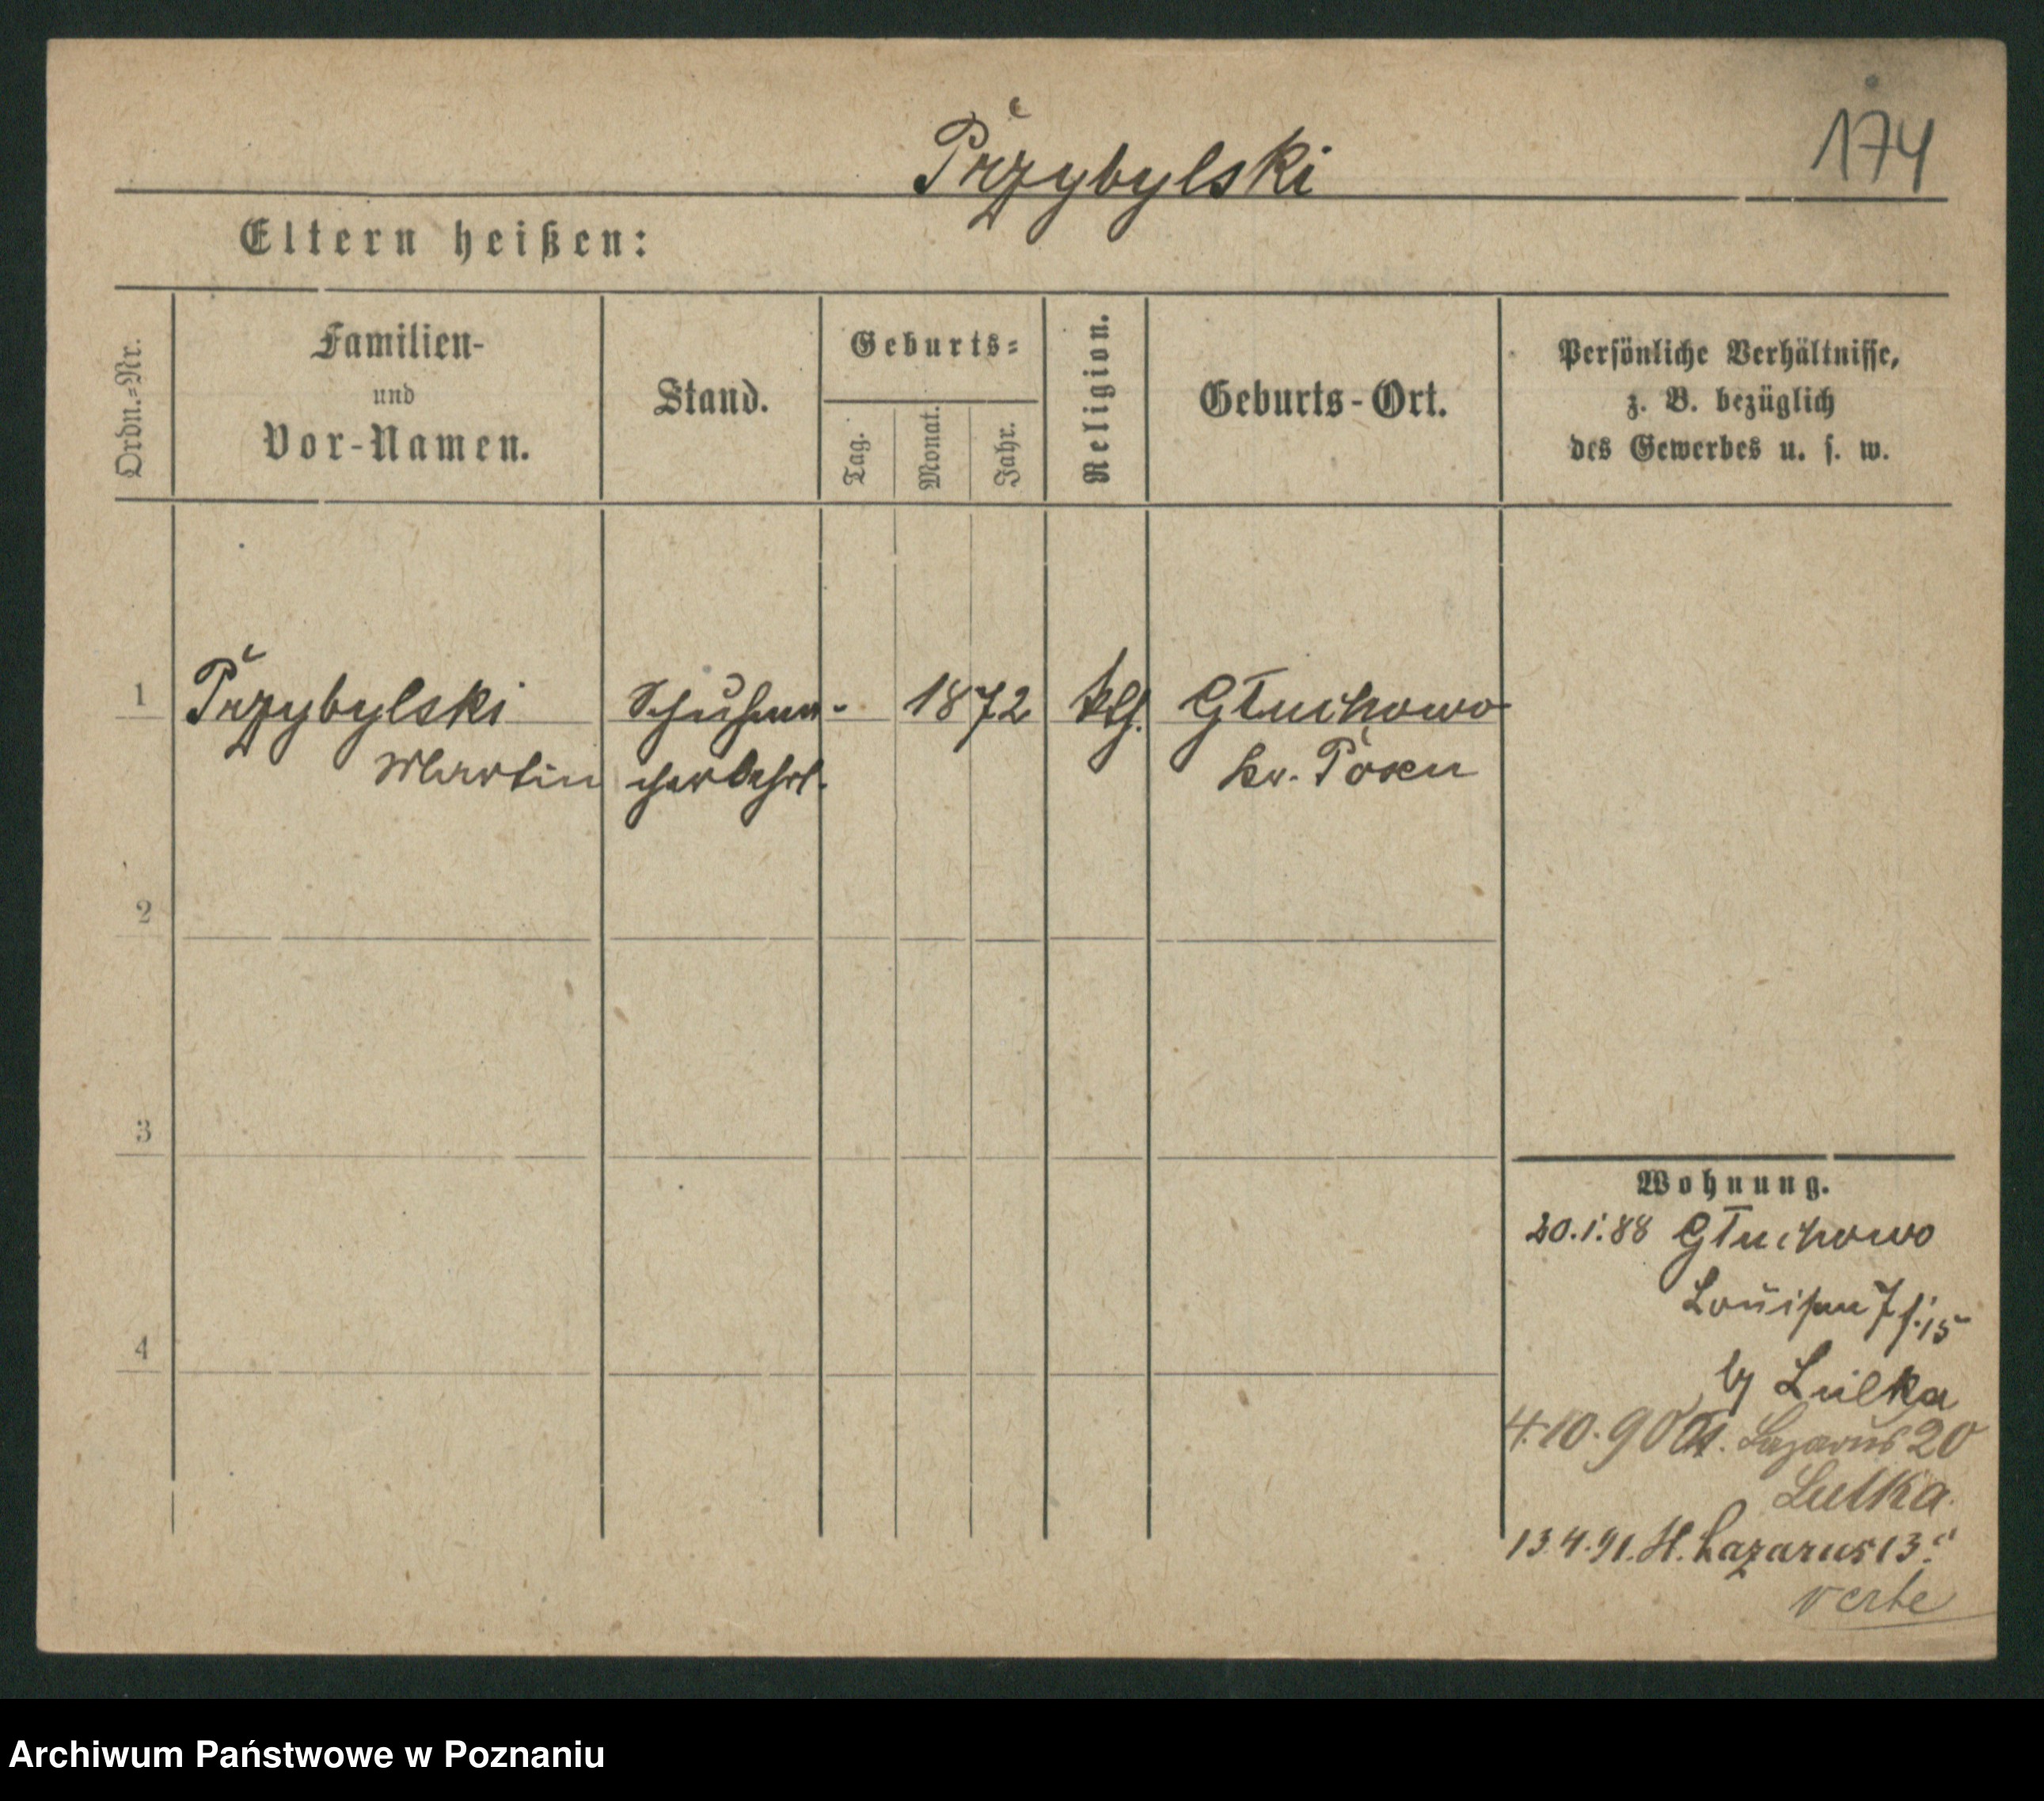 Przybylski
174
Eltern heißen:
Ordn.-Nr.
Familien-
und
Vor-Namen.
Stand.
Geburts-
Tag.
Monat.
Jahr.
Religion.
Geburts-Ort.
Persönliche Verhältnisse,
z. B. bezüglich
des Gewerbes u. s. w.
1
Przybylski
Martin
Schuhma-
cherlehrl.
1872
kth.
Głuchowo
Kr. Posen
2
3
4
Wohnung.
20.1.88 Głuchowo
Louisen
15
Lulka
4.10.90 St. Lazarus 20
Lulka.
13.4.91. St. Lazarus 13.
verte
Archiwum Państwowe w Poznaniu